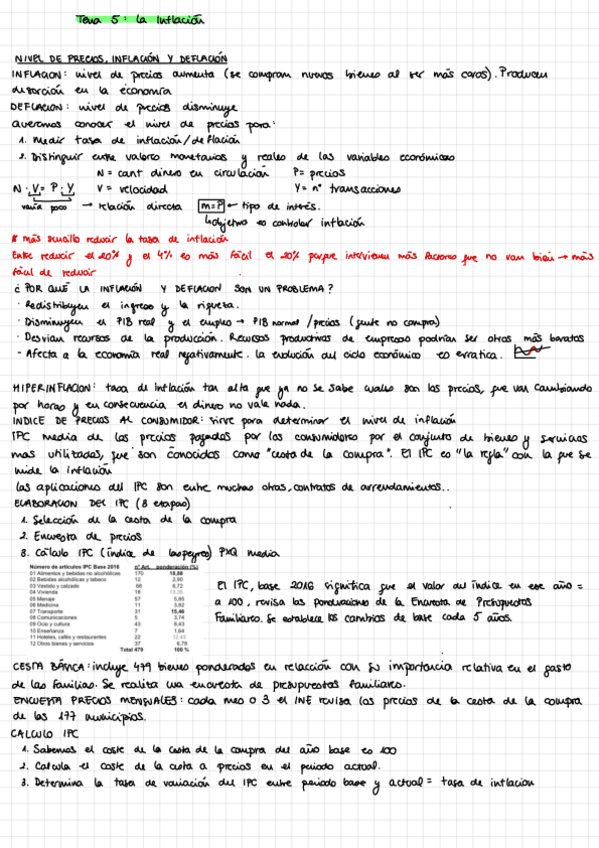 Tema 5: la Inflación
NIVEL DE PRECIOS, INFLACIÓN Y DEFLACIÓN
INFLACION: nivel de precios aumenta (se compran nuevos bienes al ser más caros). Producen
distorción en la economía
DEFLACION: nivel de precios disminuye
Queremos conocer el nivel de precios para:
1. Medir tasa de inflación/deflación
2. Distinguir entre valores monetarios y reales de las variables económicas
N = cant dinero en circulación P = precios
N · V = P · Y V = velocidad Y = nº transacciones
varía poco → relación directa m=P ← tipo de interés.
↳ objetivo es controlar inflación
* más sencillo reducir la tasa de inflación
Entre reducir el 20% y el 4% es más fácil el 20% porque intervienen más factores que no van bien → más
fácil de reducir
¿POR QUÉ LA INFLACIÓN Y DEFLACION SON UN PROBLEMA?
· Redistribuyen el ingreso y la riqueza.
· Disminuyen el PIB real y el empleo → PIB normal / precios (gente no compra)
· Desvian recursos de la producción. Recursos productivos de empresas podrían ser otros más baratos
· Afecta a la economía real negativamente. La evolución del ciclo económico es erratica.
HIPERINFLACION: tasa de inflación tan alta que ya no se sabe cuales son los precios, que van cambiando
por horas y en consecuencia el dinero no vale nada.
INDICE DE PRECIOS AL CONSUMIDOR: sirve para determinar el nivel de inflación
IPC media de los precios pagados por los consumidores por el conjunto de bienes y servicios
mas utilizados, que son conocidos como "cesta de la compra". El IPC es "la regla" con la que se
mide la inflación
Las aplicaciones del IPC son entre muchas otras, contratos de arrendamientos..
ELABORACION DEL IPC (3 etapas)
1. Selección de la cesta de la compra
2. Encuesta de precios
3. Cálculo IPC (índice de laspeyres) PxQ media
Número de artículos IPC Base 2016 nº Art. ponderación (%)
01 Alimentos y bebidas no alcohólicas 170
02 Bebidas alcohólicas y tabaco 12 2,90
03 Vestido y calzado 66 6,72
04 Vivienda 18
05 Menaje 57 5,85
06 Medicina 11 3,82
07 Transporte 31 15,46
08 Comunicaciones 5 3,74
09 Ocio y cultura 43 8,43
10 Enseñanza 7 1,64
11 Hoteles, cafés y restaurantes 22
12 Otros bienes y servicios 37 6,78
Total 479 100 %
El IPC, base 2016 significa que el valor del índice en ese año =
a 100, revisa las ponderaciones de la Encuesta de Presupuestos
Familiares. Se establece los cambios de base cada 5 años.
CESTA BÁSICA: incluye 479 bienes ponderados en relacción con su importancia relativa en el gasto
de las familias. Se realiza una encuesta de presupuestos familiares.
ENCUESTA PRECIOS MENSUALES: cada mes o 3 el INE revisa los precios de la cesta de la compra
de los 177 municipios.
CALCULO IPC
1. Sabemos el coste de la cesta de la compra del año base es 100
2. Calcula el coste de la cesta a precios en el periodo actual.
3. Determina la tasa de variación del IPC entre periodo base y actual = tasa de inflacion